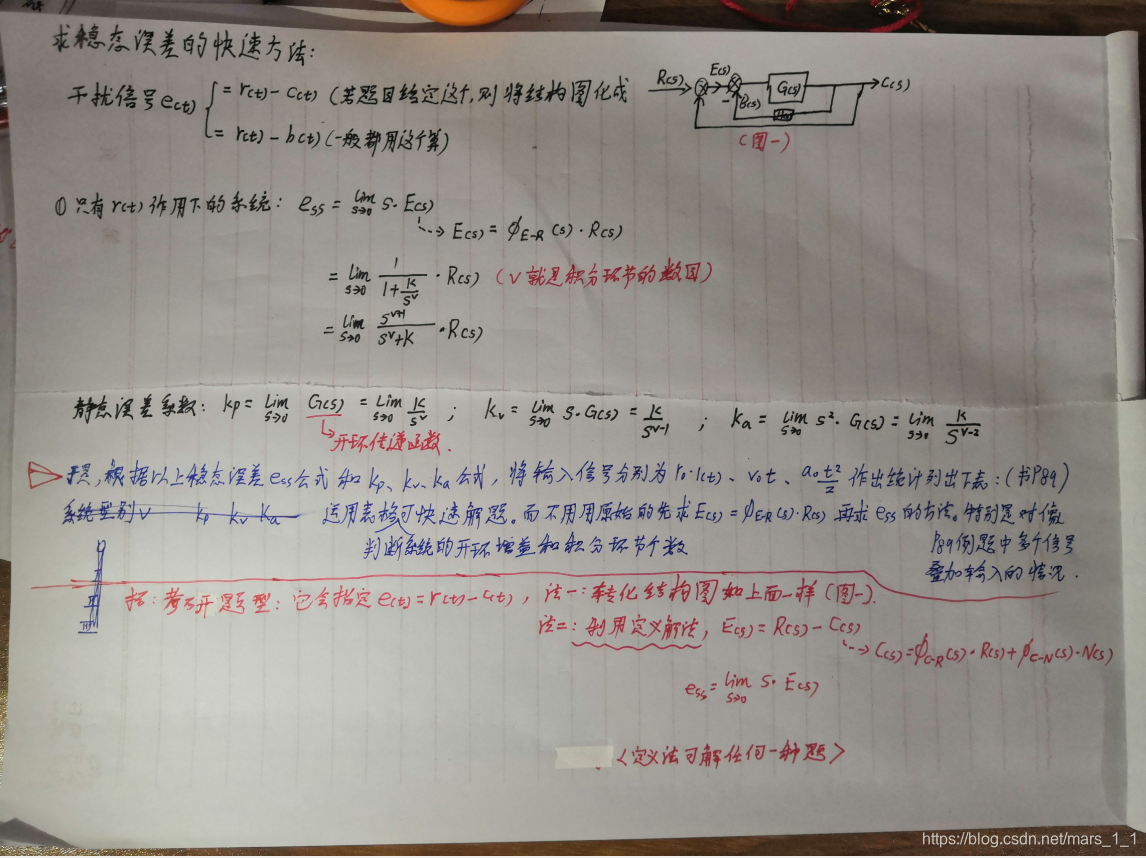 求稳态误差的快速方法:
干扰信号e(t) { = r(t) - c(t) (若题目给定这个,则将结构图化成
= r(t) - b(t) (一般都用这个算)
R(s) E(s) - B(s) G(s) C(s)
(图一)
① 只有r(t)作用下的系统: ess = lim s→0 s·E(s)
E(s) = ϕE-R(s)·R(s)
= lim s→0 1/(1+K/s^v) · R(s) (v就是积分环节的数目)
= lim s→0 s^(v+1)/(s^v+K) · R(s)
静态误差系数: kp = lim s→0 G(s) = lim s→0 K/s^v ; kv = lim s→0 s·G(s) = K/s^(v-1) ; ka = lim s→0 s²·G(s) = lim s→0 K/s^(v-2)
开环传递函数.
根据以上稳态误差ess公式和kp、kv、ka公式, 将输入信号分别为r0·1(t)、v0t、a0t²/2 作出统计列出下表: (书P89)
系统型别v kp kv ka 运用表格可快速解题。而不用用原始的先求E(s)=ϕE-R(s)·R(s) 再求ess的方法。特别是对像
判断系统的开环增益和积分环节个数
P89例题中多个信号
叠加输入的情况.
题型: 它会指定e(t)=r(t)-c(t), 法一: 转化结构图如上面一样(图一).
法二: 利用定义解法, E(s)=R(s)-C(s)
C(s)=ϕC-R(s)·R(s)+ϕC-N(s)·N(s)
ess = lim s→0 s·E(s)
<定义法可解任何一种题>
https://blog.csdn.net/mars_1_1